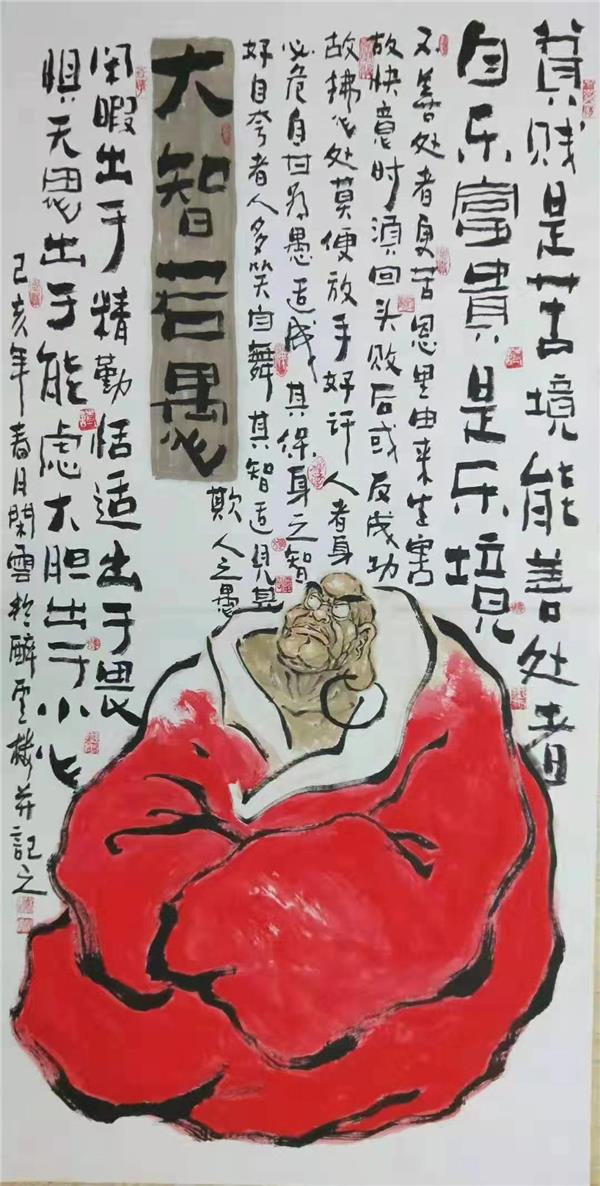 貧贱是苦境能善处者
自乐富貴是乐境
不善处者更苦恩里由来生害
故快意时须回头败后或反成功
故拂心处莫便放手好讦人者身
必危自甘为愚适成其保身之智
好自夸者人多笑自舞其智适见其
欺人之愚
大智若愚
闲暇出于精勤恬适出于畏
惧无思出于能虑大胆出于小心
己亥年春月閑雲於醉雲楼并記之